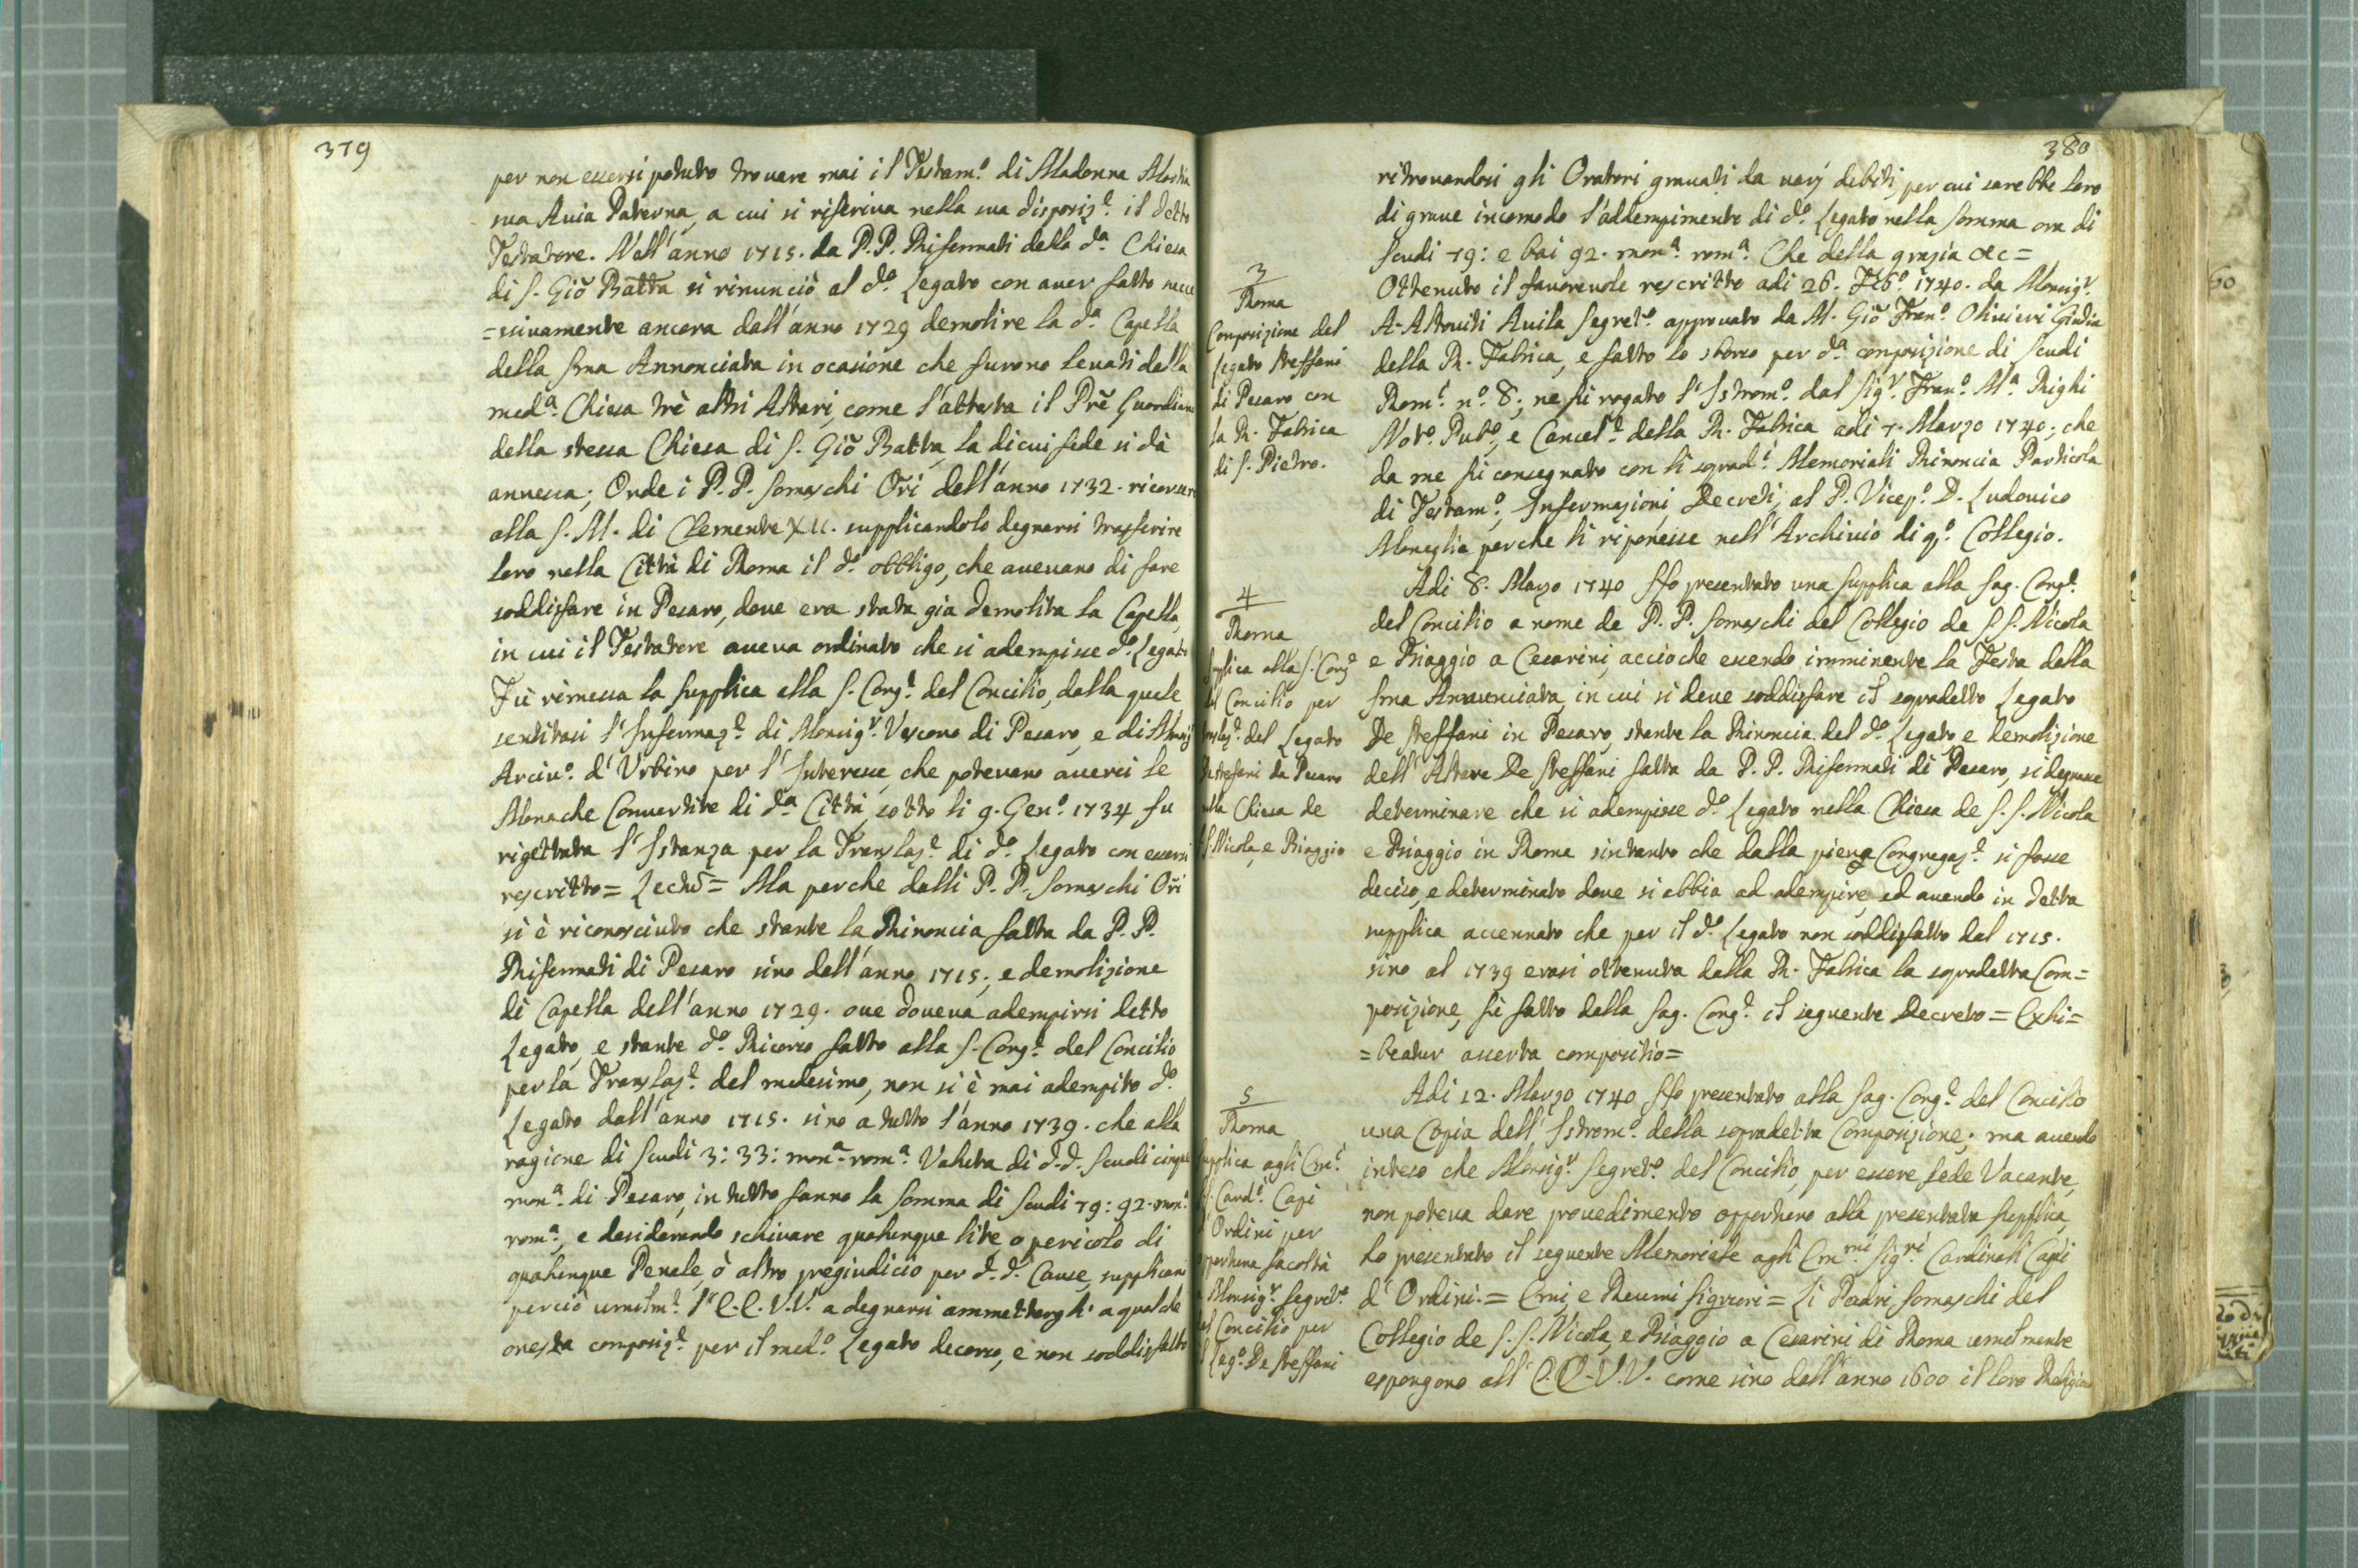 379
per non essersi potuto trovare mai il Testam.º di Madonna
sua Avia Paterna, a cui si riferiva nella sua disposiz.e il detto
Testatore. Nell'anno 1715. da P.P. Riformati della d.a Chiesa
di S. Giõ Batta si rinunciò al d.º Legato con aver fatto succe
=scivamente ancora dall'anno 1729 demolire la d.a Capella
della Sma Annonciata in ocasione che furono levati dalla
med.a Chiesa trè altri Altari, come l'attesta il Prẽ Guardiano
della stessa Chiesa di S. Giõ Batta, la di cui fede si dà
annessa; Onde i P.P. Somaschi Ori dell'anno 1732. ricorsero
alla S. M. di Clemente XII. supplicandolo degnarsi trasferire
loro nella Città di Roma il d.º obbligo, che avevano di fare
soddisfare in Pesaro, dove era stata gia demolita la Capella,
in cui il Testatore aveva ordinato che si adempisse d.º Legato
Fù rimessa la supplica alla S. Cong.e del Concilio, dalla quale
sentitasi l'Informaz.e di Monsig.r Vescovo di Pesaro, e di Monsig
Arciv.º d'Urbino per l'Interesse, che potevano averci le
Monache Convertite di d.a Città, sotto li 9. Gen.º 1734 fu
rigettata l'Istanza per la Translaz.e di d.º Legato con essersi
rescritto= Lectũ= Ma perche dalli P.P. Somaschi Ori
si è riconosciuto che stante la Rinoncia fatta da P.P.
Riformati di Pesaro sino dall'anno 1715; e demolizione
di Capella dell'anno 1729. ove doveva adempirsi detto
Legato, e stante d.º Ricorso fatto alla S. Cong.e del Concilio
per la Translaz.e del medesimo, non si è mai adempito d.º
Legato dall'anno 1715. sino a tutto l'anno 1739. che alla
ragione di Scudi 3:33: mon.a rom.a Valuta di d.d. Scudi cinque
mon.a di Pesaro, in tutto fanno la somma di Scudi 79:92. mon.a
rom.a, e desiderando schivare qualunque lite, o pericolo di
qualunque Penale, ò altro pregiudicio per d.d. Cause, supplicano
perciò umilm.e l'E.E.V.V. a degnarsi ammetterglí a qualche
onesta composiz.e per il med.º Legato decorso, e non soddisfatto
380
ritrovandosi gli Oratori gravati da varj debiti, per cui sarebbe loro
di grave incomodo l'addempimento di d.º Legato nella somma ora di
Scudi 79: e bai 92. mon.a rom.a Che della grazia &c=
3
Roma
Composizione del
Legato Steffani
di Pesaro con
la R. Fabrica
di S. Pietro.
Ottenuto il favorevole rescritto adi 26. 1740. da Monsig.r
A. Altoviti Avila Segret.º approvato da M. Giõ Fran.º Olivieri Giudice
della R. Fabrica, e fatto lo sborso per d.a composizione di Scudi
Rom.i n.º 8; ne fù rogato l'Istrom.º dal Sig.r Fran.º M.a Righi
Not.º Pub.º, e Cancel.e della R. Fabrica adi 7. Marzo 1740; che
da me fù consegnato con li sopradˑi Memoriali Rinoncia Particola
di Testam.º, Informazioni, Decreti, al P. Vicep.º D. Ludovico
Moneglia perche li riponesse nell'Archivio di q.º Collegio.
4
Roma
Supplica alla S. Cong.e
del Concilio per
translaz.e del Legato
De Steffani da Pesaro
nella Chiesa de
S.S. Nicola, e Biaggio
Adi 8. Marzo 1740 Ho presentato una supplica alla Sag. Cong.e
del Concilio a nome de P.P. Somaschi del Collegio de S.S. Nicola
e Biaggio a Cesarini, accioche essendo imminente la Festa della
Sma Annunciata, in cui si deve soddisfare il sopradetto Legato
De Steffani in Pesaro, stante la Rinoncia del d.º Legato, e demolizione
dell'Altare De Steffani fatta da P.P. Riformati di Pesaro, si degnasse
determinare che si adempisse d.º Legato nella Chiesa de S.S. Nicola
e Biaggio in Roma sintanto che dalla piena Congregaz.e si fosse
deciso, e determinato dove si abbia ad adempire, ed avendo in detta
supplica accennato che per il d.º Legato non soddisfatto dal 1715.
sino al 1739 erasi ottenuta dalla R. Fabrica la sopradetta Com=
posizione, fù fatto dalla Sag. Cong.e il seguente Decreto= Exhi=
=beatur asserta compositio=
5
Roma
Supplica agli Em.i
S. Card.i Capi
d'Ordini per
opportuna facoltà
a Monsig.r Segret.º
del Concilio per
il Leg.º De Steffani
Adi 12. Marzo 1740 Ho presentato alla Sag. Cong.e del Concilio
una Copia dell'Istrom.º della sopradetta Composizione; ma avendo
inteso che Monsig.r Segret.º del Concilio, per essere Sede Vacante,
non poteva dare provedimento opportuno alla presentata supplica,
ho presentato il seguente Memoriale agli Em.mi Sig.ri Cardinali Capi
d'Ordini.= Emi, e Rev.mi Signori= Li Padri Somaschi del
Collegio de S.S. Nicola, e Biaggio a Cesarini di Roma umilmente
espongono all'E.E.V.V. come sino dall'anno 1600 il loro Religioso